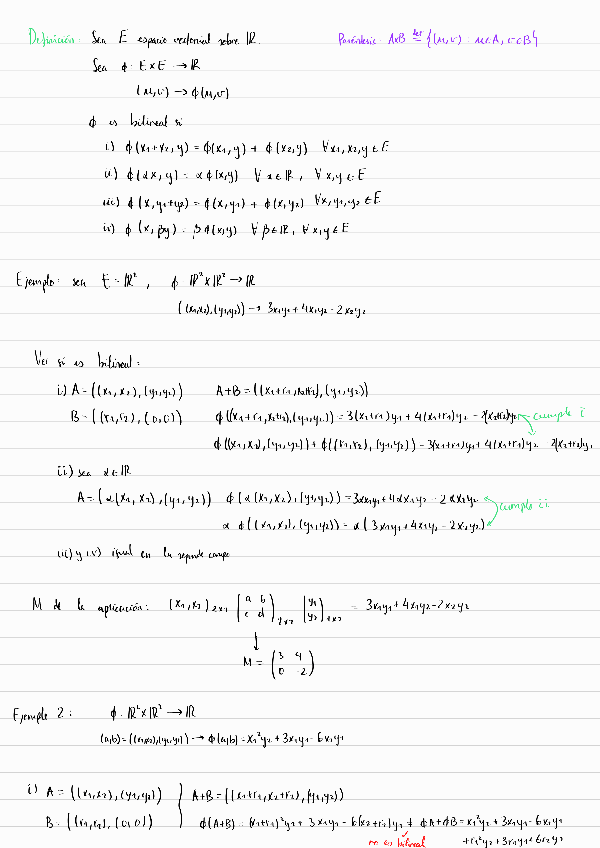 Definición: Sea E espacio vectorial sobre ℝ. Paréntesis: A×B def= {(u,v) : u∈A, v∈B}
Sea ϕ: E×E → ℝ
(u,v) → ϕ(u,v)
ϕ es bilineal si
i) ϕ(x₁+x₂, y) = ϕ(x₁, y) + ϕ(x₂, y) ∀x₁, x₂, y ∈ E
ii) ϕ(αx, y) = α ϕ(x,y) ∀ α ∈ ℝ, ∀ x,y ∈ E
iii) ϕ(x, y₁+y₂) = ϕ(x, y₁) + ϕ(x, y₂) ∀x, y₁, y₂ ∈ E
iv) ϕ(x, βy) = β ϕ(x,y) ∀ β ∈ ℝ, ∀ x,y ∈ E
Ejemplo: sea E = ℝ², ϕ: ℝ²×ℝ² → ℝ
((x₁,x₂), (y₁,y₂)) → 3x₁y₁ + 4x₁y₂ - 2x₂y₂
Ver si es bilineal:
i) A = ((x₁, x₂), (y₁, y₂)) A+B = ((x₁+r₁, x₂+r₂), (y₁, y₂))
B = ((r₁, r₂), (0,0)) ϕ((x₁+r₁, x₂+r₂), (y₁, y₂)) = 3(x₁+r₁)y₁ + 4(x₁+r₁)y₂ - 2(x₂+r₂)y₂ cumple i
ϕ((x₁, x₂), (y₁, y₂)) + ϕ((r₁, r₂), (y₁, y₂)) = 3(x₁+r₁)y₁ + 4(x₁+r₁)y₂ - 2(x₂+r₂)y₂
ii) sea α ∈ ℝ
A = (α(x₁, x₂), (y₁, y₂)) ϕ(α(x₁, x₂), (y₁, y₂)) = 3αx₁y₁ + 4αx₁y₂ - 2αx₂y₂ cumple ii
α ϕ((x₁, x₂), (y₁, y₂)) = α(3x₁y₁ + 4x₁y₂ - 2x₂y₂)
iii) y iv) igual en la segunda comp
M de la aplicación: (x₁, x₂)₂ₓ₁ (a b
c d)₂ₓ₂ (y₁
y₂)₁ₓ₂ = 3x₁y₁ + 4x₁y₂ - 2x₂y₂
↓
M = (3 4
0 -2)
Ejemplo 2: ϕ: ℝ²×ℝ² → ℝ
(a,b) = ((x₁,x₂), (y₁,y₂)) → ϕ(a,b) = x₁²y₂ + 3x₁y₁ - 6x₂y₂
i) A = ((x₁, x₂), (y₁, y₂)) A+B = ((x₁+r₁, x₂+r₂), (y₁, y₂))
B = ((r₁, r₂), (0,0)) ϕ(A+B) = (x₁+r₁)²y₂ + 3x₁y₁ - 6(x₂+r₂)y₂ ≠ ϕA + ϕB = x₁²y₂ + 3x₁y₁ - 6x₂y₂
no es bilineal + r₁²y₂ + 3r₁y₁ + 6r₂y₂